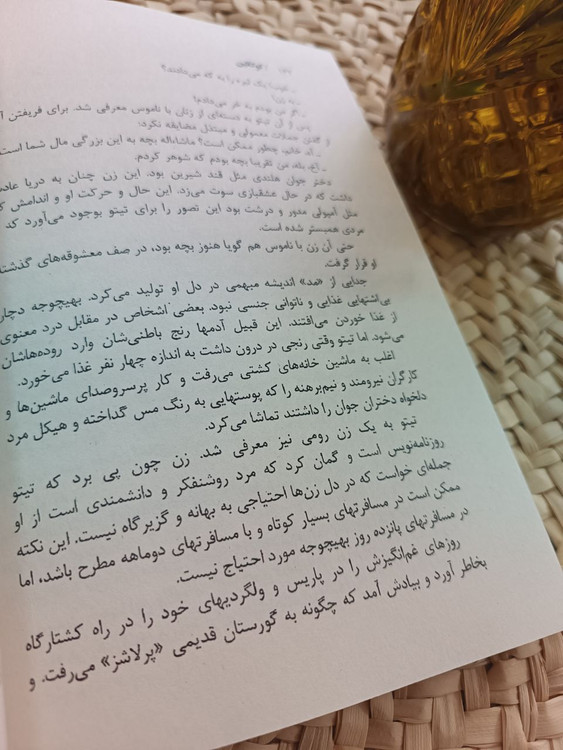 زنان با ناموس معرفی شد. برای فریفتن
از گفتن جملات معمولی و مبتذل مضایقه نکرد.
ـ آه خانم، چطور ممکن است؟ ماشاءالله بچه به این بزرگی مال شما است
ـ آخ، بله، من تقریبا بچه بودم که شوهر کردم.
دختر جوان هلندی مثل قند شیرین بود. این زن چنان به دریا
داشت که در حال عشقبازی سوت می‌زد. این حال و حرکت او و اندامش
مثل آمپولی مدور و درشت بود این تصور را برای تیتو بوجود می‌آورد که
مردی همبستر شده است.
حتی آن زن با ناموس هم گویا هنوز بچه بود، در صف معشوقه‌های
او قرار گرفت.
جدایی از «مد» اندیشه مبهمی در دل او تولید می‌کرد. بهیچوجه دچار
بی‌اشتهایی غذایی و ناتوانی جنسی نبود. بعضی اشخاص در مقابل درد معنوی
از غذا خوردن می‌افتند. این قبیل آدمها رنج باطنی‌شان وارد روده‌هاشان
می‌شود. اما تیتو وقتی رنجی در درون داشت به اندازه چهار نفر غذا می‌خورد.
اغلب به ماشین خانه‌های کشتی می‌رفت و کار پرسروصدای ماشین‌ها و
کارگران نیرومند و نیم‌برهنه را که پوستهایی به رنگ مس گداخته و هیکل مرد
دلخواه دختران جوان را داشتند تماشا می‌کرد.
تیتو به یک زن رومی نیز معرفی شد. زن چون پی برد که تیتو
روزنامه‌نویس است و گمان کرد که مرد روشنفکر و دانشمندی است از او
جمله‌ای خواست که در دل زن‌ها احتیاجی به بهانه و گزیرگاه نیست. این نکته
ممکن است در مسافرتهای بسیار کوتاه و با مسافرتهای دوماهه مطرح باشد، اما
در مسافرتهای پانزده روز بهیچوجه مورد احتیاج نیست.
روزهای غم‌انگیزش را در پاریس و ولگردیهای خود را در راه کشتارگاه
بخاطر آورد و بیادش آمد که چگونه به گورستان قدیمی «پرلاشز» می‌رفت. و